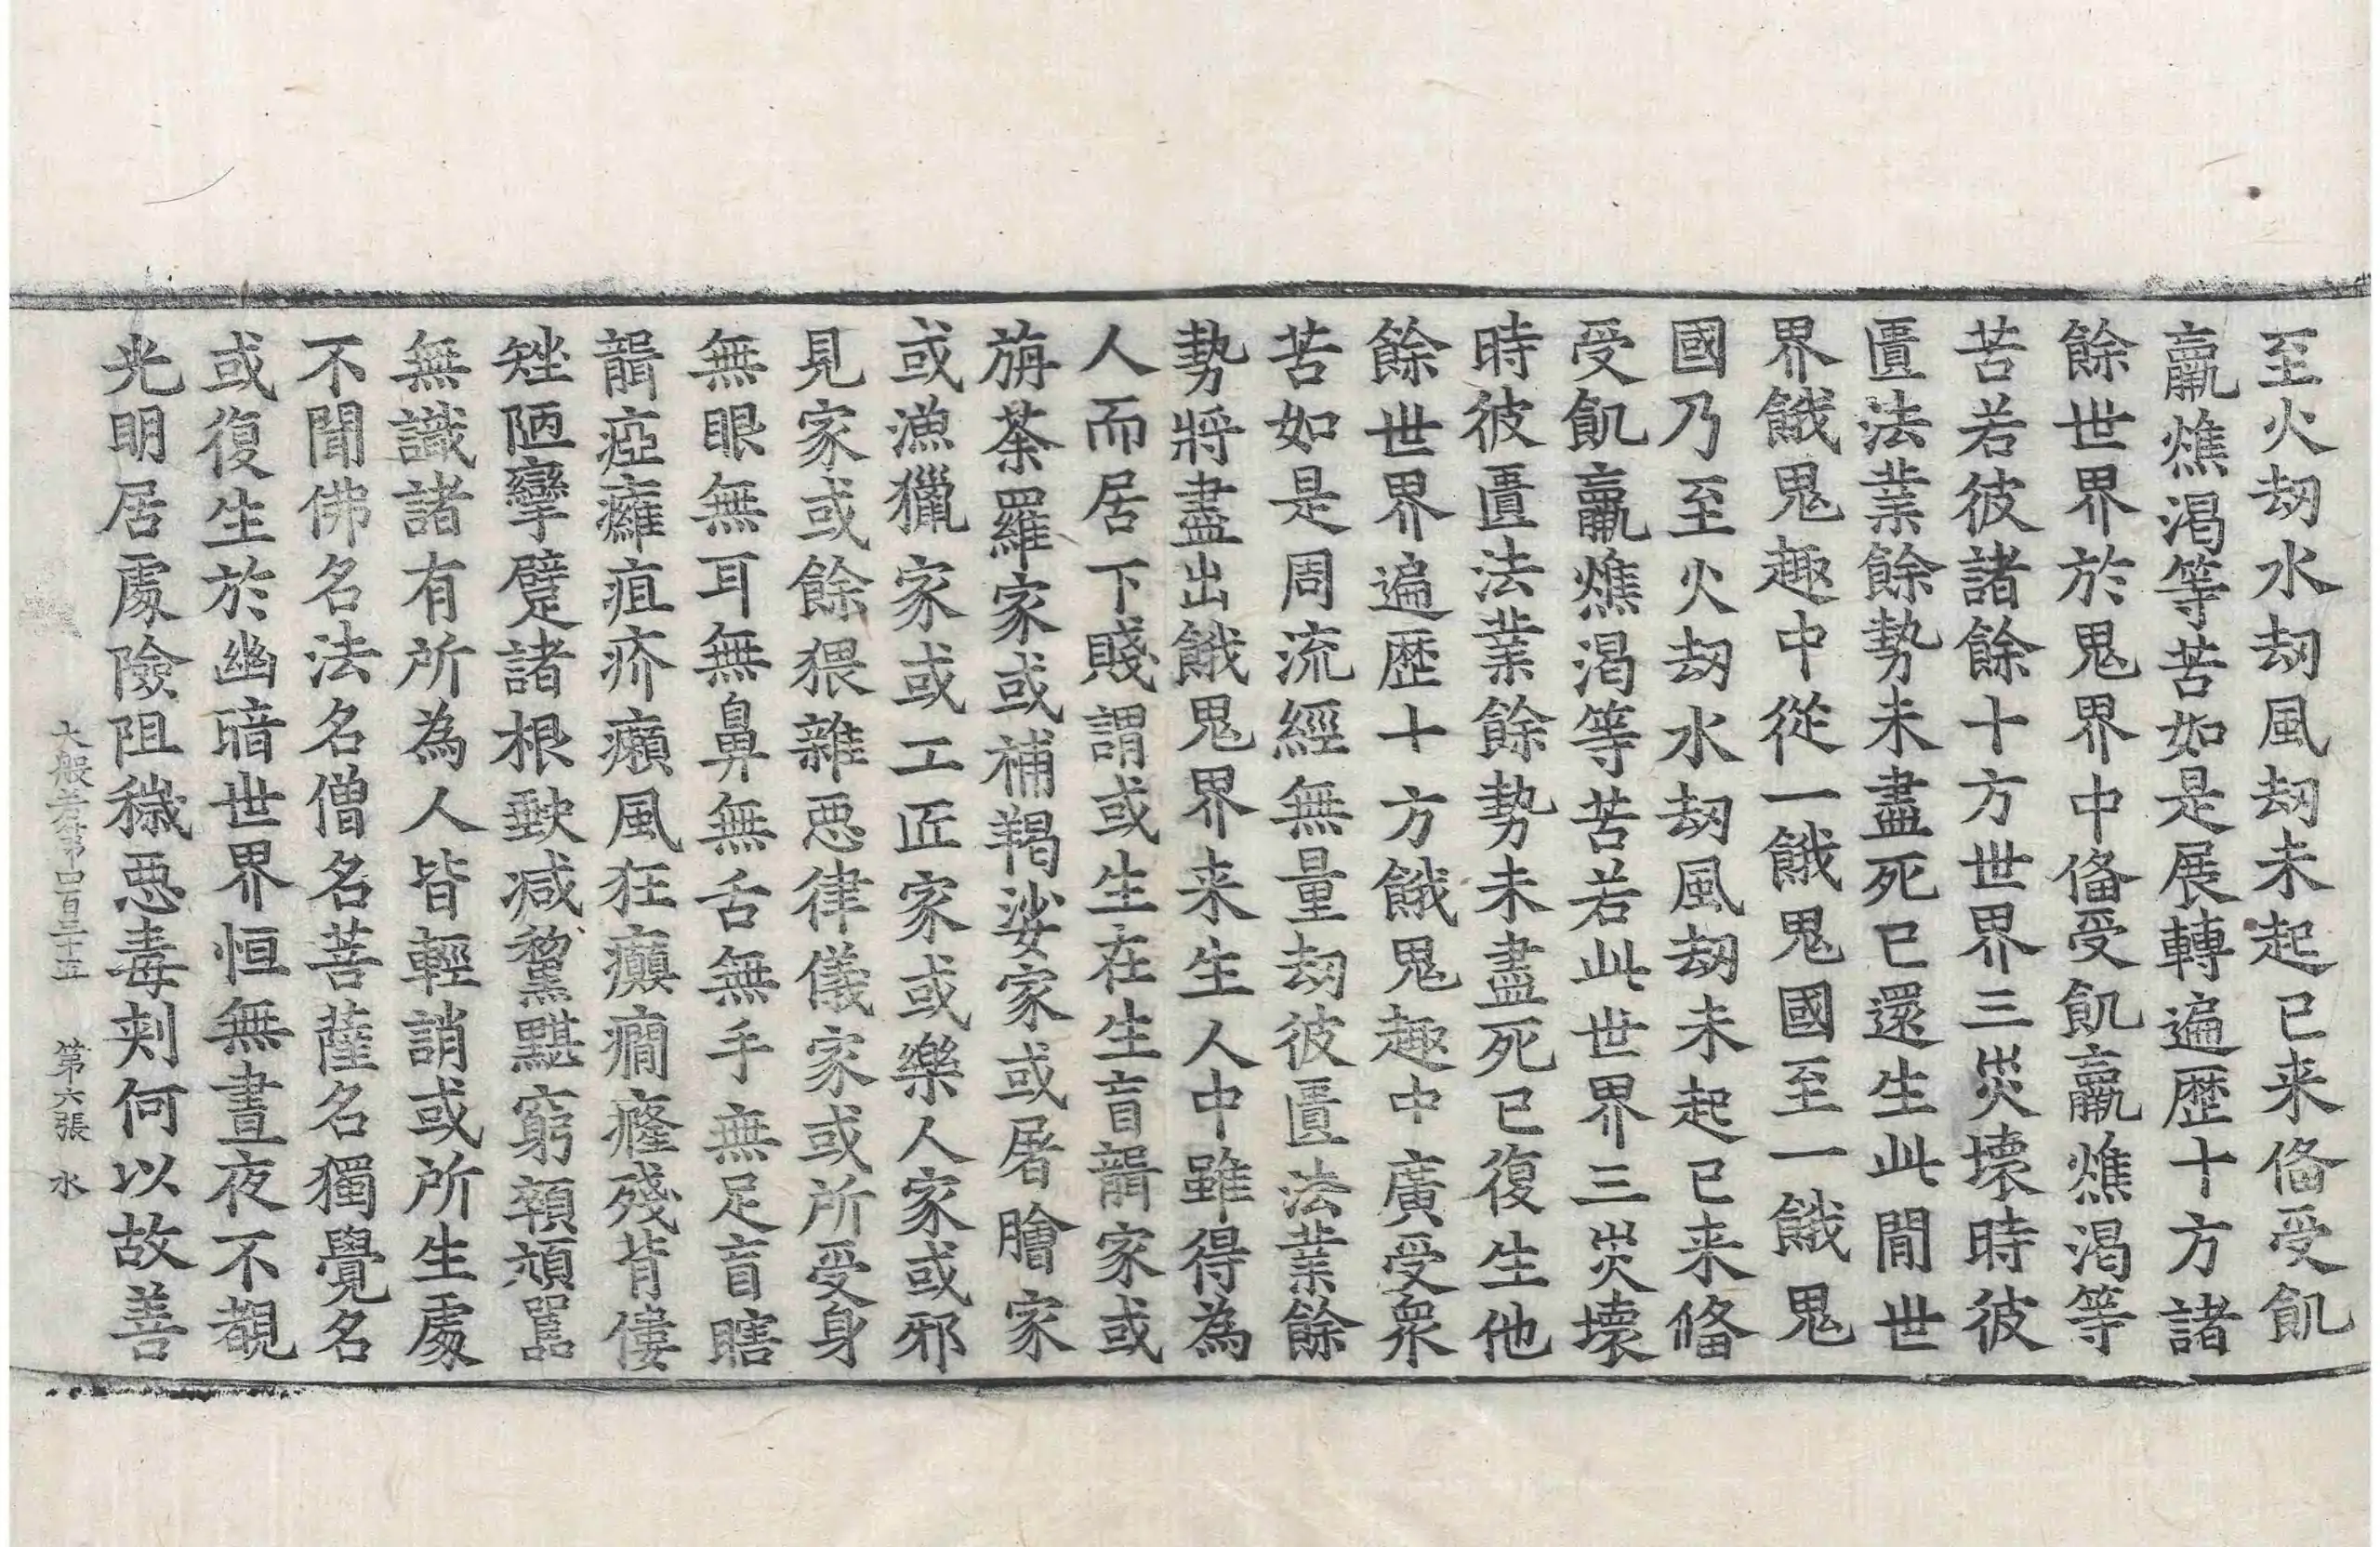 至火劫水劫風劫未起已来俻受飢
羸燋渴等苦如是展轉遍歷十方諸
餘世界於鬼界中俻受飢羸燋渴等
苦若彼諸餘十方世界三災壞時彼
匱法業餘勢未盡死已還生此閒世
界餓鬼趣中從一餓鬼國至一餓鬼
國乃至火劫水劫風劫未起已来俻
受飢羸燋渴等苦若此世界三災壞
時彼匱法業餘勢未盡死已復生他
餘世界遍歷十方餓鬼趣中廣受衆
苦如是周流經無量劫彼匱法業餘
勢將盡出餓鬼界来生人中雖得為
人而居下賤謂或生在生盲聾家或
旃荼羅家或補羯娑家或屠膾家
或漁獵家或工匠家或樂人家或邪
見家或餘猥雜惡律儀家或所受身
無眼無耳無鼻無舌無手無足盲瞎
聾瘂癰疽疥癩風狂癲癎癃殘背僂
矬陋攣躄諸根缺减黧黮窮顇頑嚚
無識諸有所為人皆輕誚或所生處
不聞佛名法名僧名菩薩名獨覺名
或復生於幽暗世界恒無晝夜不覩
光明居處險阻穢惡毒刺何以故善
大般若第四百三十五 第六張 水